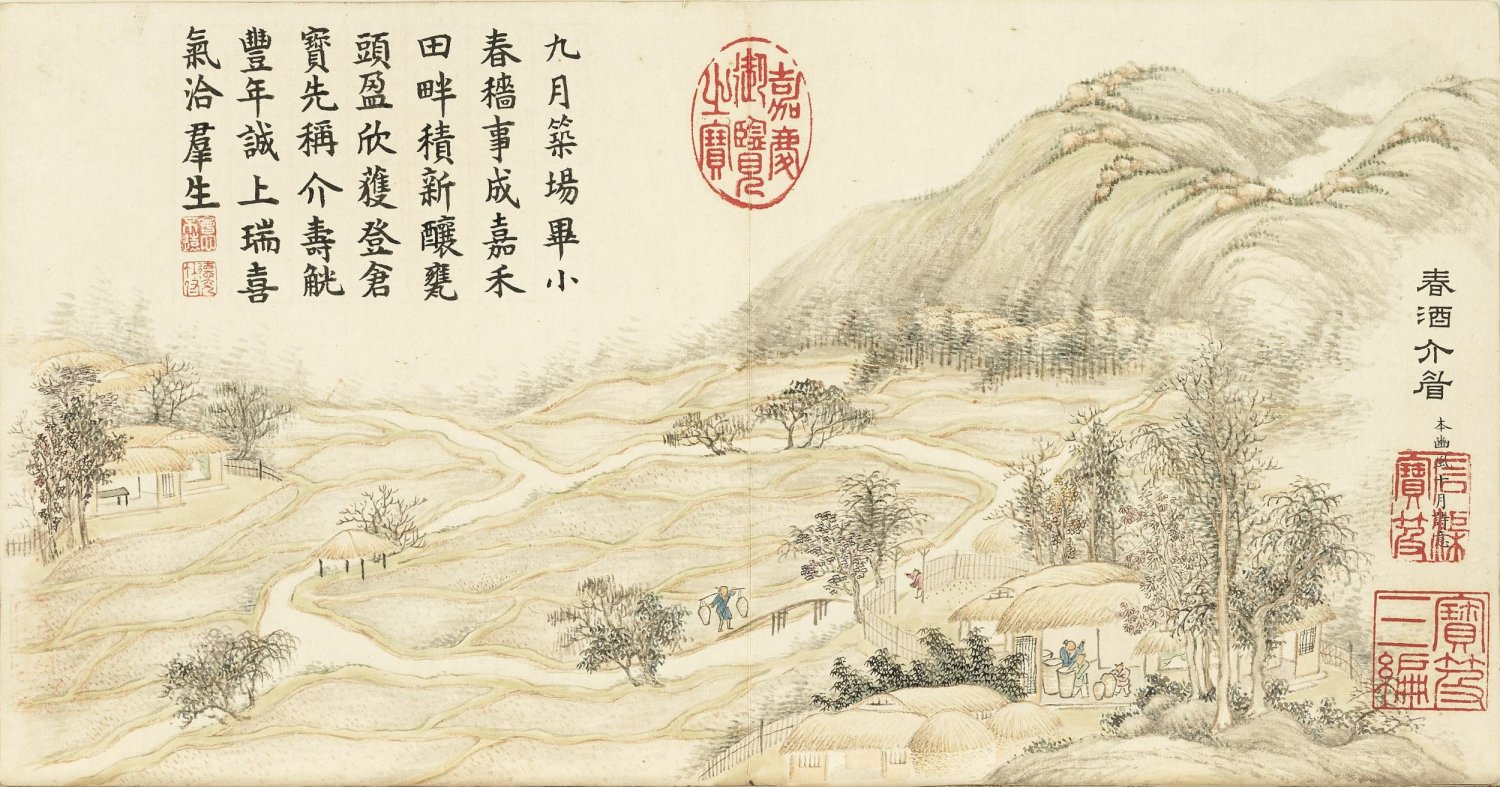 春酒介眉
本豳風七月詩意
石渠寶笈
寶笈三編
嘉慶御覽之寶
九月築場畢小
春穡事成嘉禾
田畔積新釀甕
頭盈欣獲登倉
寶先稱介壽觥
豐年誠上瑞喜
氣洽羣生